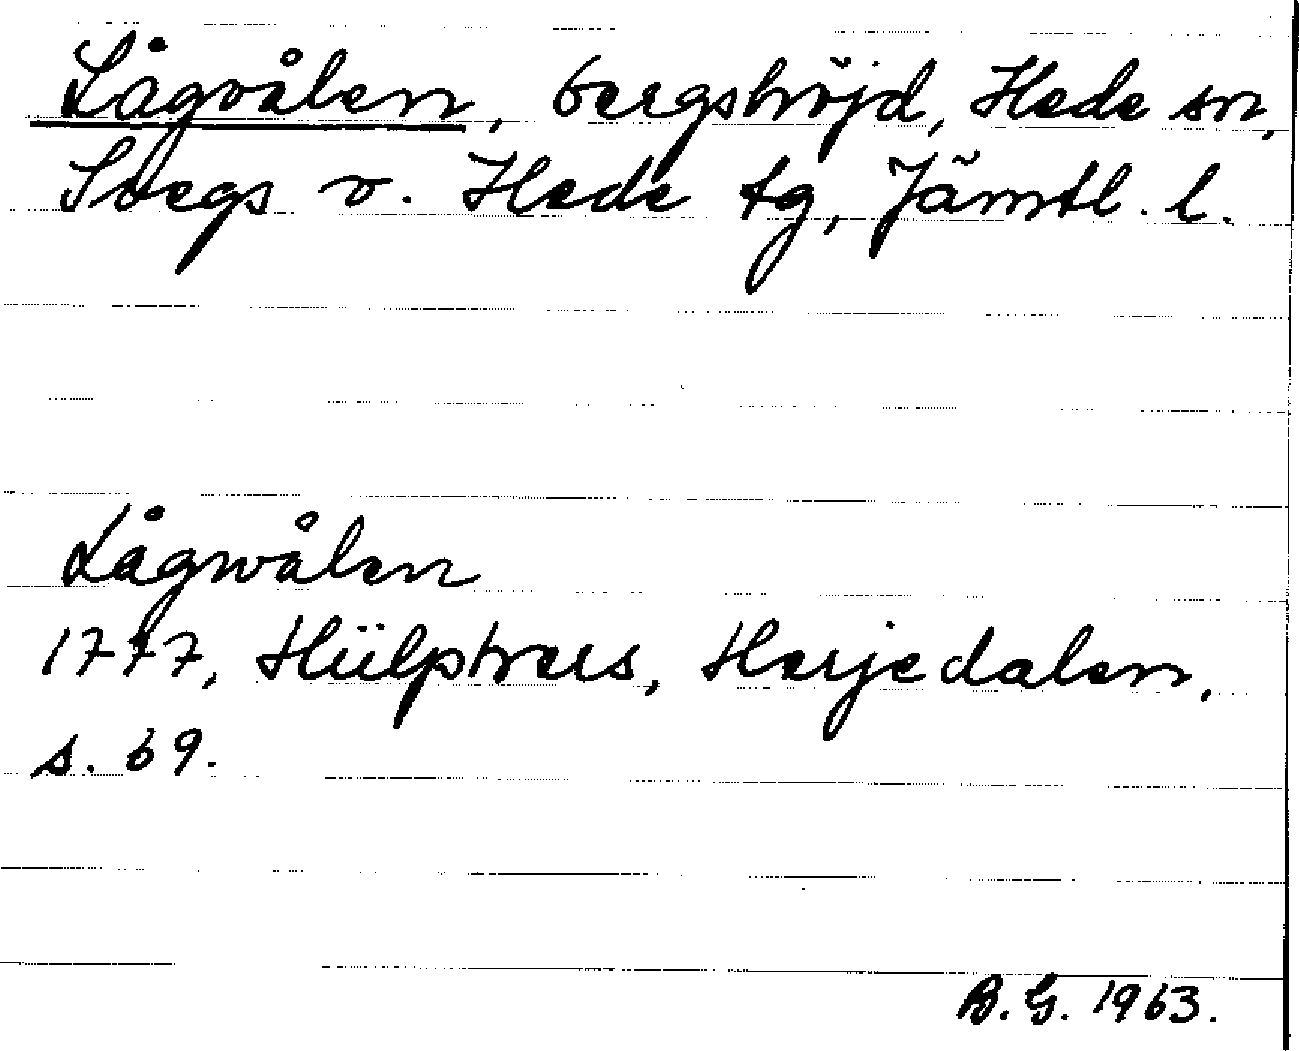 Lågvålen, bergshöjd, Hede sn,
Svegs o. Hede tg, Jämtl. l.
Lågwålen
1777, Hülphers, Herjedalen,
s. 69.
B. G. 1963.